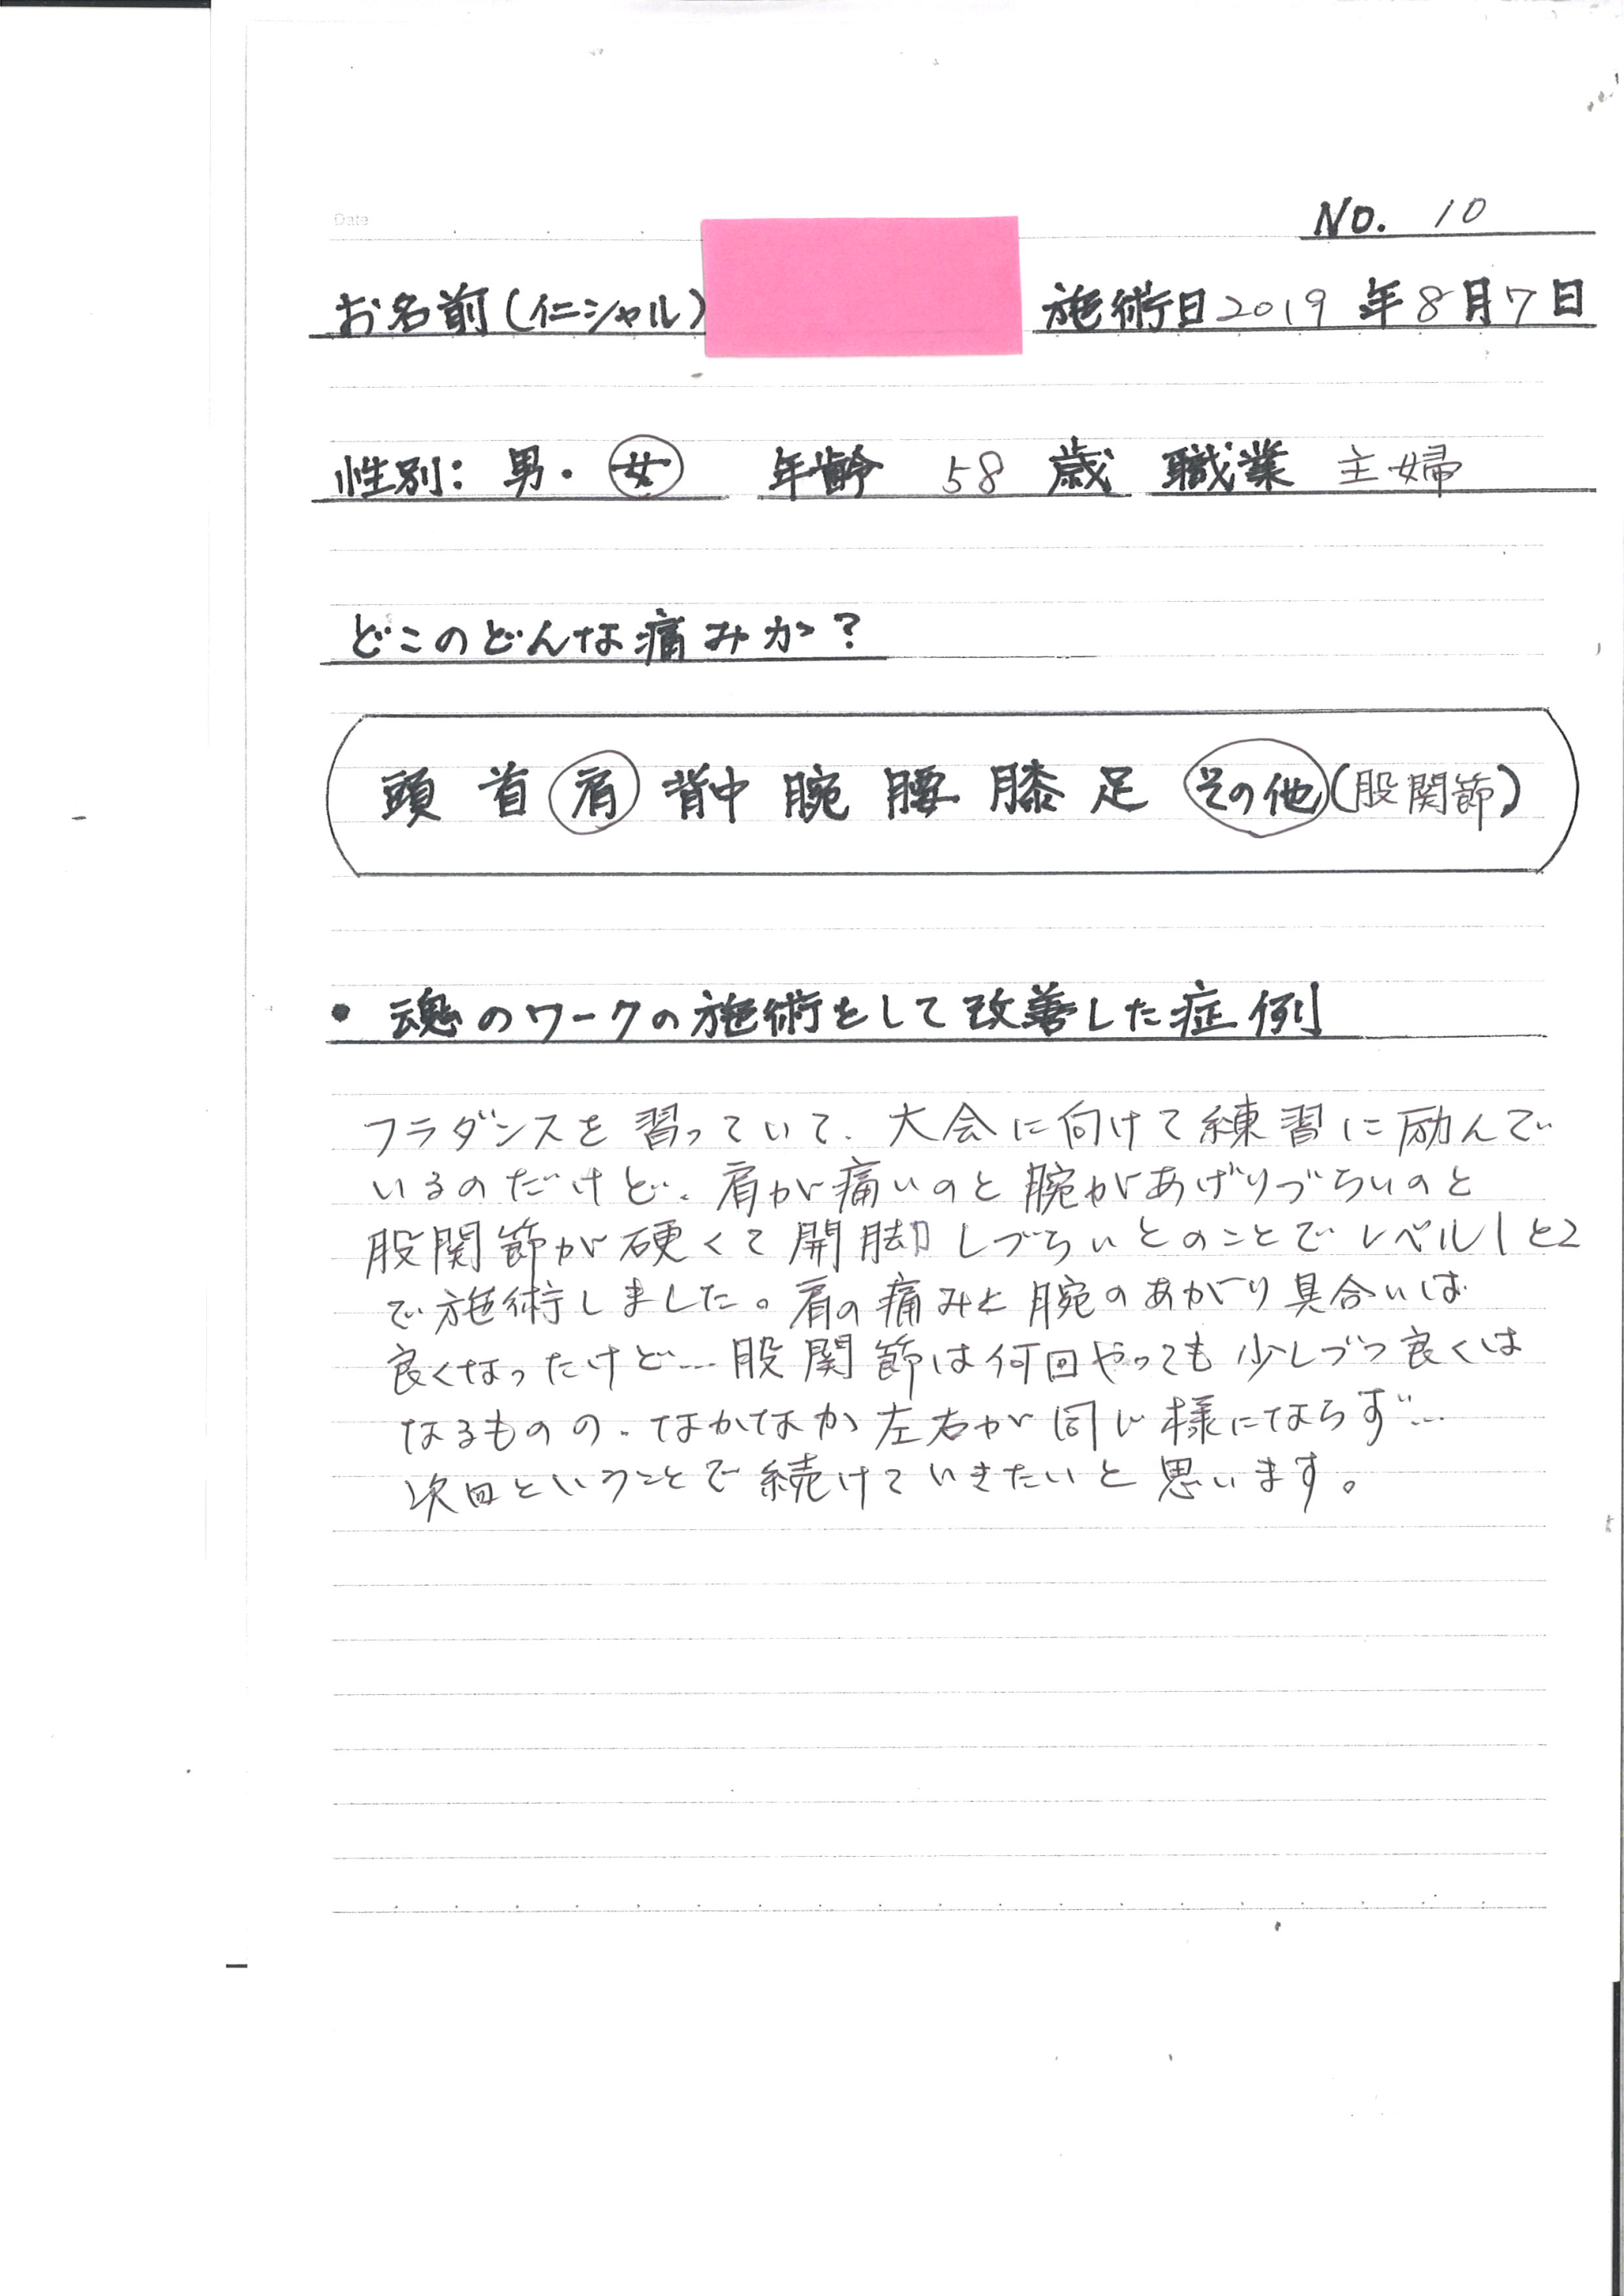 Date
No. 10
お名前(イニシャル)
施術日2019年8月7日
性別:男・女 年齢 58 歳 職業 主婦
どこのどんな痛みか?
頭 首 肩 背中 腕 腰 膝 足 その他(股関節)
・魂のワークの施術をして改善した症例
フラダンスを習っていて、大会に向けて練習に励んで
いるのだけど、肩が痛いのと腕があげりづらいのと
股関節が硬くて開脚しづらいとのことでレベル1と2
で施術しました。肩の痛みと腕のあがり具合いは
良くなったけど…股関節は何回やっても少しづつ良くは
なるものの、なかなか左右が同じ様にならず…
次回ということで続けていきたいと思います。